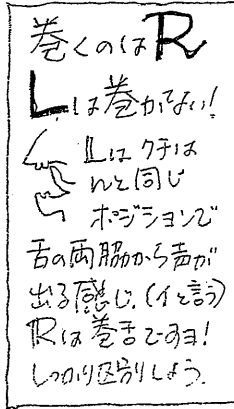 巻くのはR
Lは巻かない！
Lはクチは
んと同じ
ポジションで
舌の両脇から声が
出る感じ.(イと言う)
Rは巻舌ですヨ！
しっかり区別しよう.